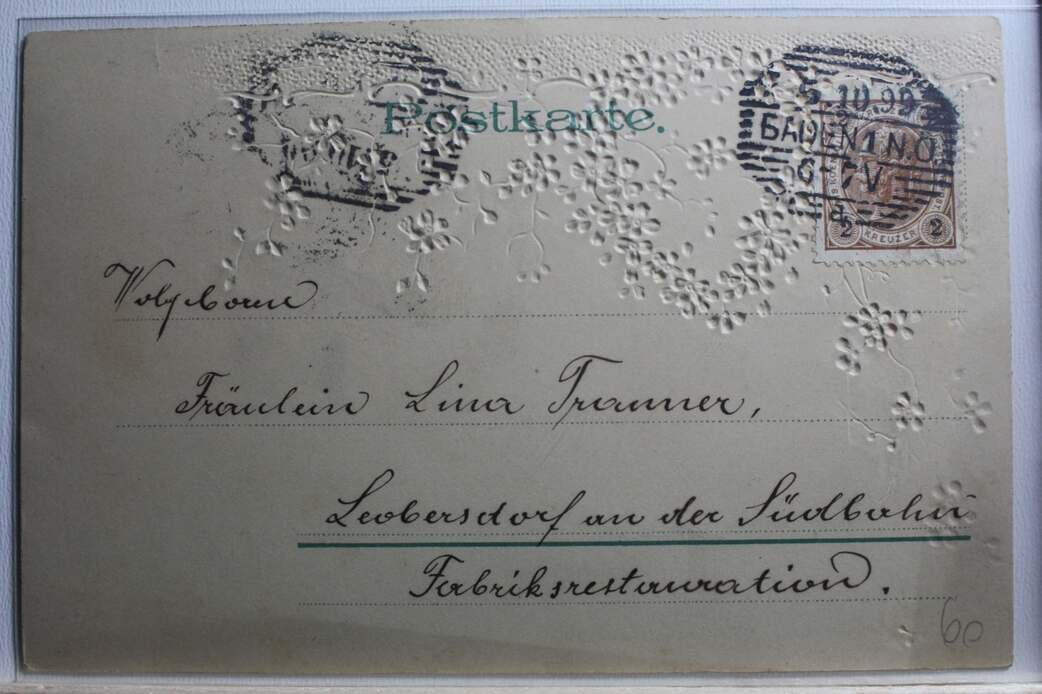 Postkarte.
5.10.99
BADEN 1 N.Ö
6-7 V
2 KREUZER 2
Wolgeboren
Fräulein Lina Tranner,
Leobersdorf an der Südbahn
Fabriksrestauration.
60